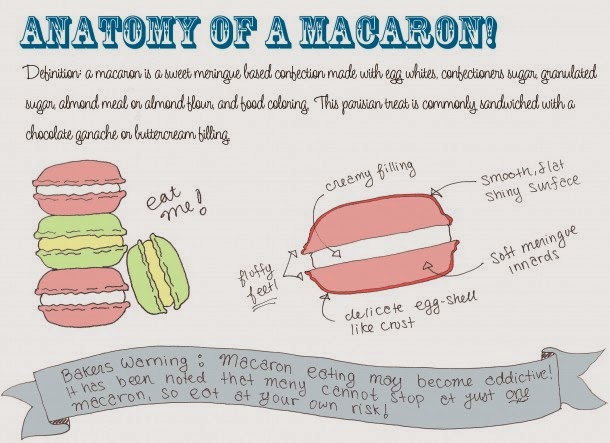 ANATOMY OF A MACARON!
Definition: a macaron is a sweet meringue based confection made with egg whites, confectioners sugar, granulated
sugar, almond meal or almond flour, and food coloring. This parisian treat is commonly sandwiched with a
chocolate ganache or buttercream filling.
eat
me!
creamy filling
smooth, flat
shiny surface
fluffy
feet!
soft meringue
innards
delicate egg-shell
like crust
Bakers Warning: Macaron eating may become addictive!
It has been noted that many cannot stop at just one
macaron, so eat at your own risk!